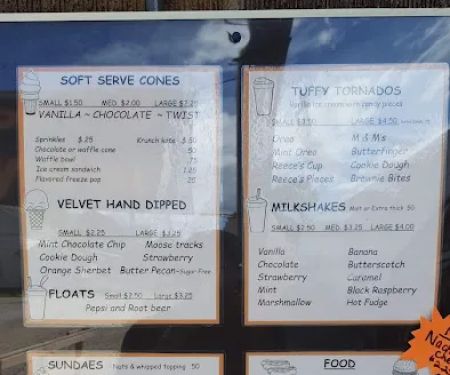 SOFT SERVE CONES
SMALL $1.50 MED. $2.00 LARGE
VANILLA ~ CHOCOLATE ~ TWIST
Sprinkles $.25 Krunch kote $.50
Chocolate or waffle cone .50
Waffle bowl .75
Ice cream sandwich 1.25
Flavored freeze pop .25
VELVET HAND DIPPED
SMALL $2.25 LARGE $3.25
Mint Chocolate Chip Moose tracks
Cookie Dough Strawberry
Orange Sherbet Butter Pecan-Sugar Free
FLOATS Small $2.50 Large $3.25
Pepsi and Root beer
SUNDAES Nuts & whipped topping .50
TUFFY TORNADOS
Vanilla ice cream with candy pieces
SMALL $3.50 LARGE $4.50
Oreo M & M's
Mint Oreo Butterfinger
Reece's Cup Cookie Dough
Reece's Pieces Brownie Bites
MILKSHAKES Malt or Extra thick .50
SMALL $2.50 MED. $3.25 LARGE $4.00
Vanilla Banana
Chocolate Butterscotch
Strawberry Caramel
Mint Black Raspberry
Marshmallow Hot Fudge
FOOD